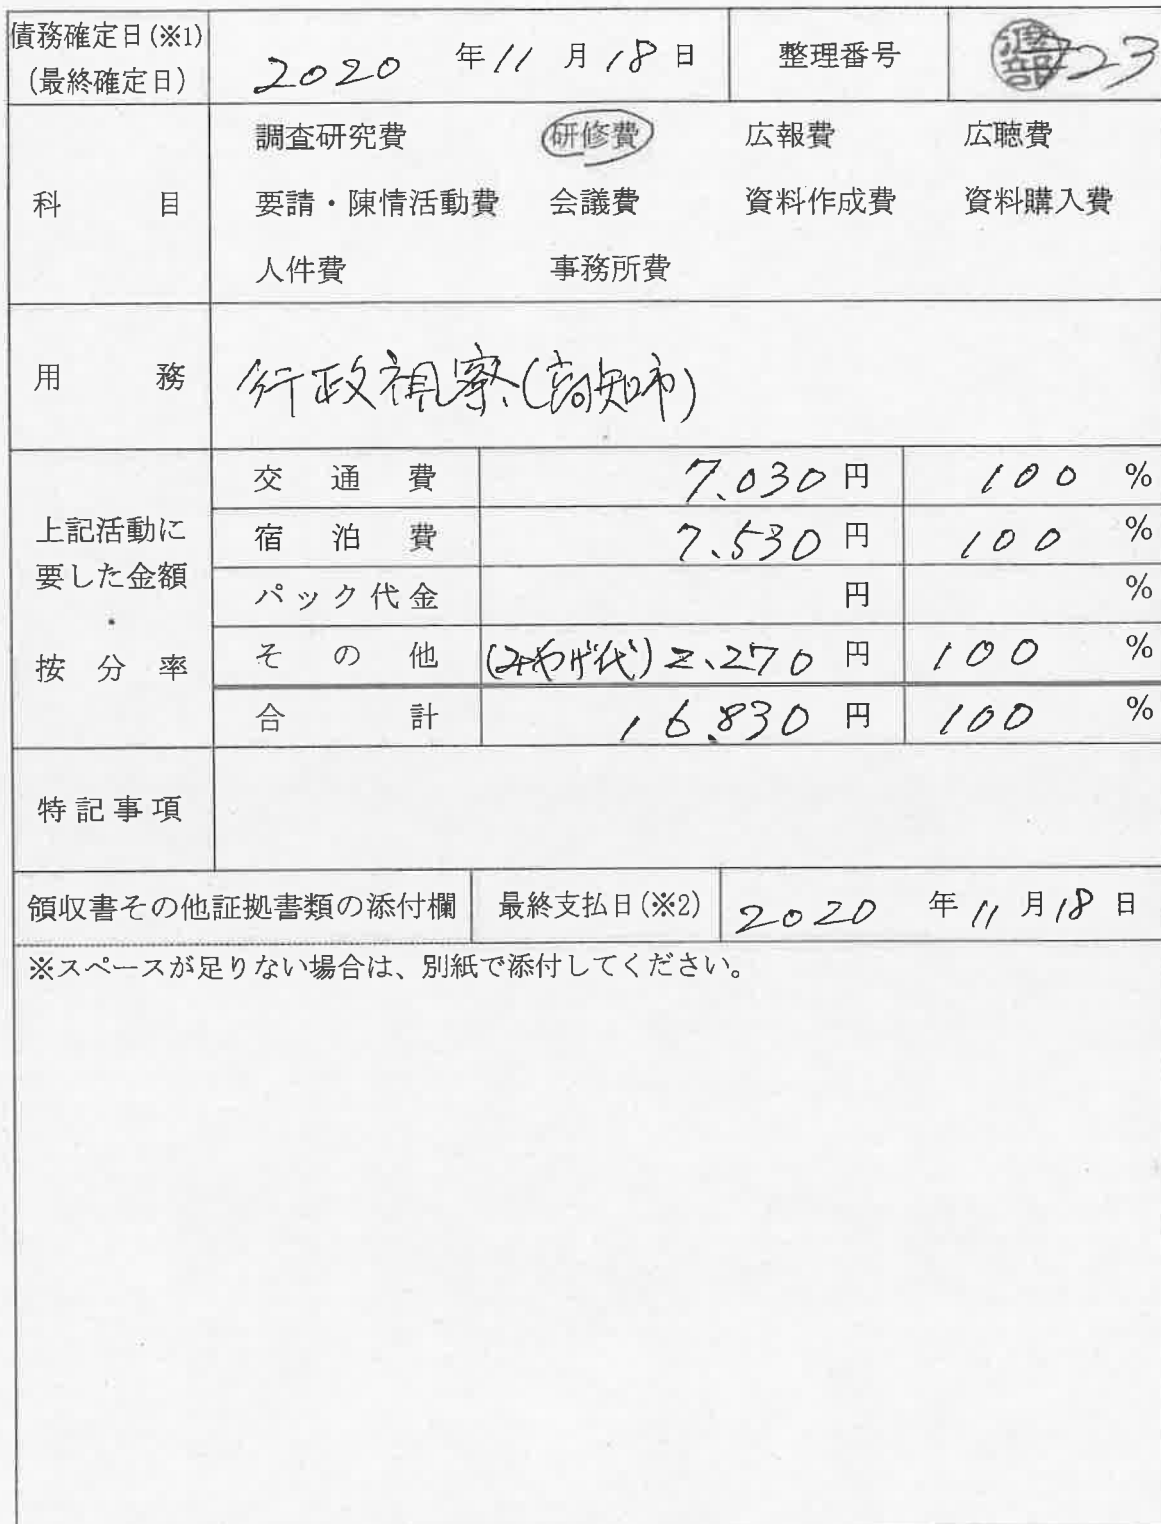 債務確定日(※1) 2020 年 11 月 18 日 整理番号 渡部 723
(最終確定日)
調査研究費 研修費 広報費 広聴費
科目 要請・陳情活動費 会議費 資料作成費 資料購入費
人件費 事務所費
用務 行政視察(高知市)
上記活動に要した金額・按分率
交通費 7.030 円 100 %
宿泊費 7.530 円 100 %
パック代金 円 %
その他 (みやげ代) 2.270 円 100 %
合計 16.830 円 100 %
特記事項
領収書その他証拠書類の添付欄 最終支払日(※2) 2020 年 11 月 18 日
※スペースが足りない場合は、別紙で添付してください。